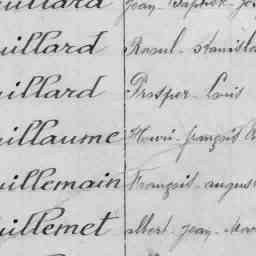 uillard Jean-Baptiste-Jo
uillard Raoul-Stanislas
uillard Prosper-Louis
uillaume Henri-françois
uillemain François-augus
uillemet albert-Jean-Mar